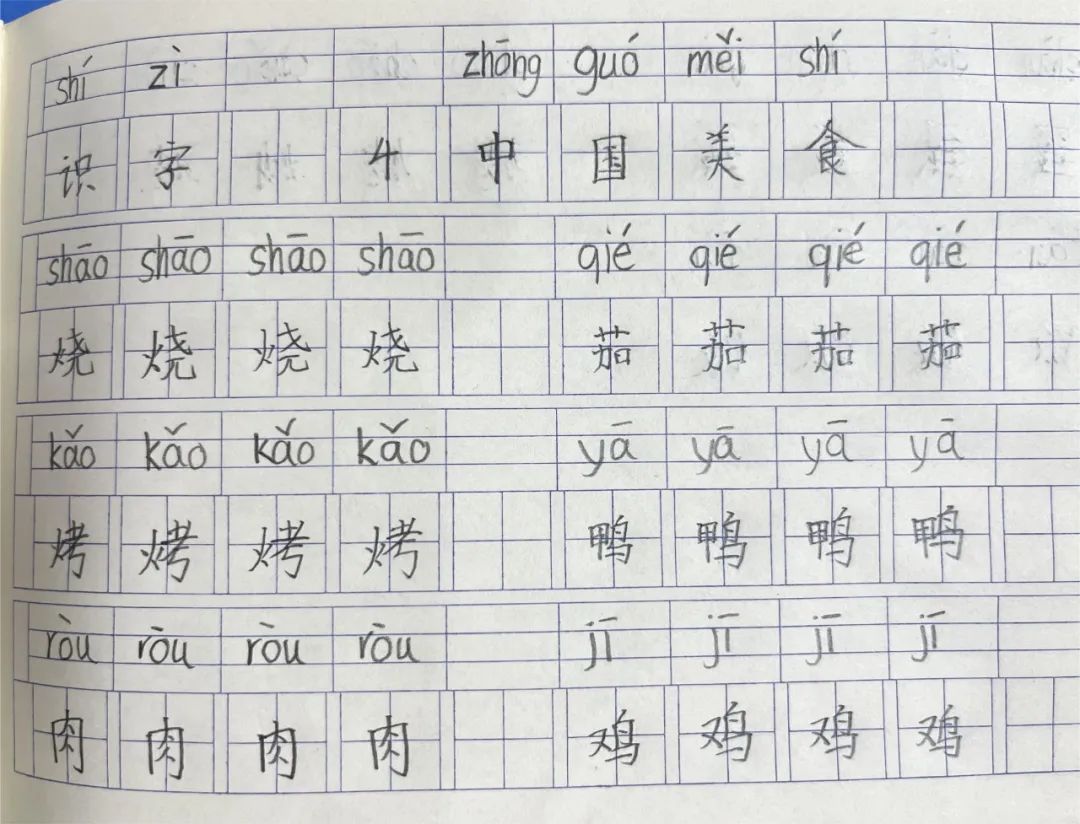 shí zì zhōng guó měi shí
识 字 4 中 国 美 食
shāo shāo shāo shāo qié qié qié qié
烧 烧 烧 烧 茄 茄 茄 茄
kǎo kǎo kǎo kǎo yā yā yā yā
烤 烤 烤 烤 鸭 鸭 鸭 鸭
ròu ròu ròu ròu jī jī jī jī
肉 肉 肉 肉 鸡 鸡 鸡 鸡